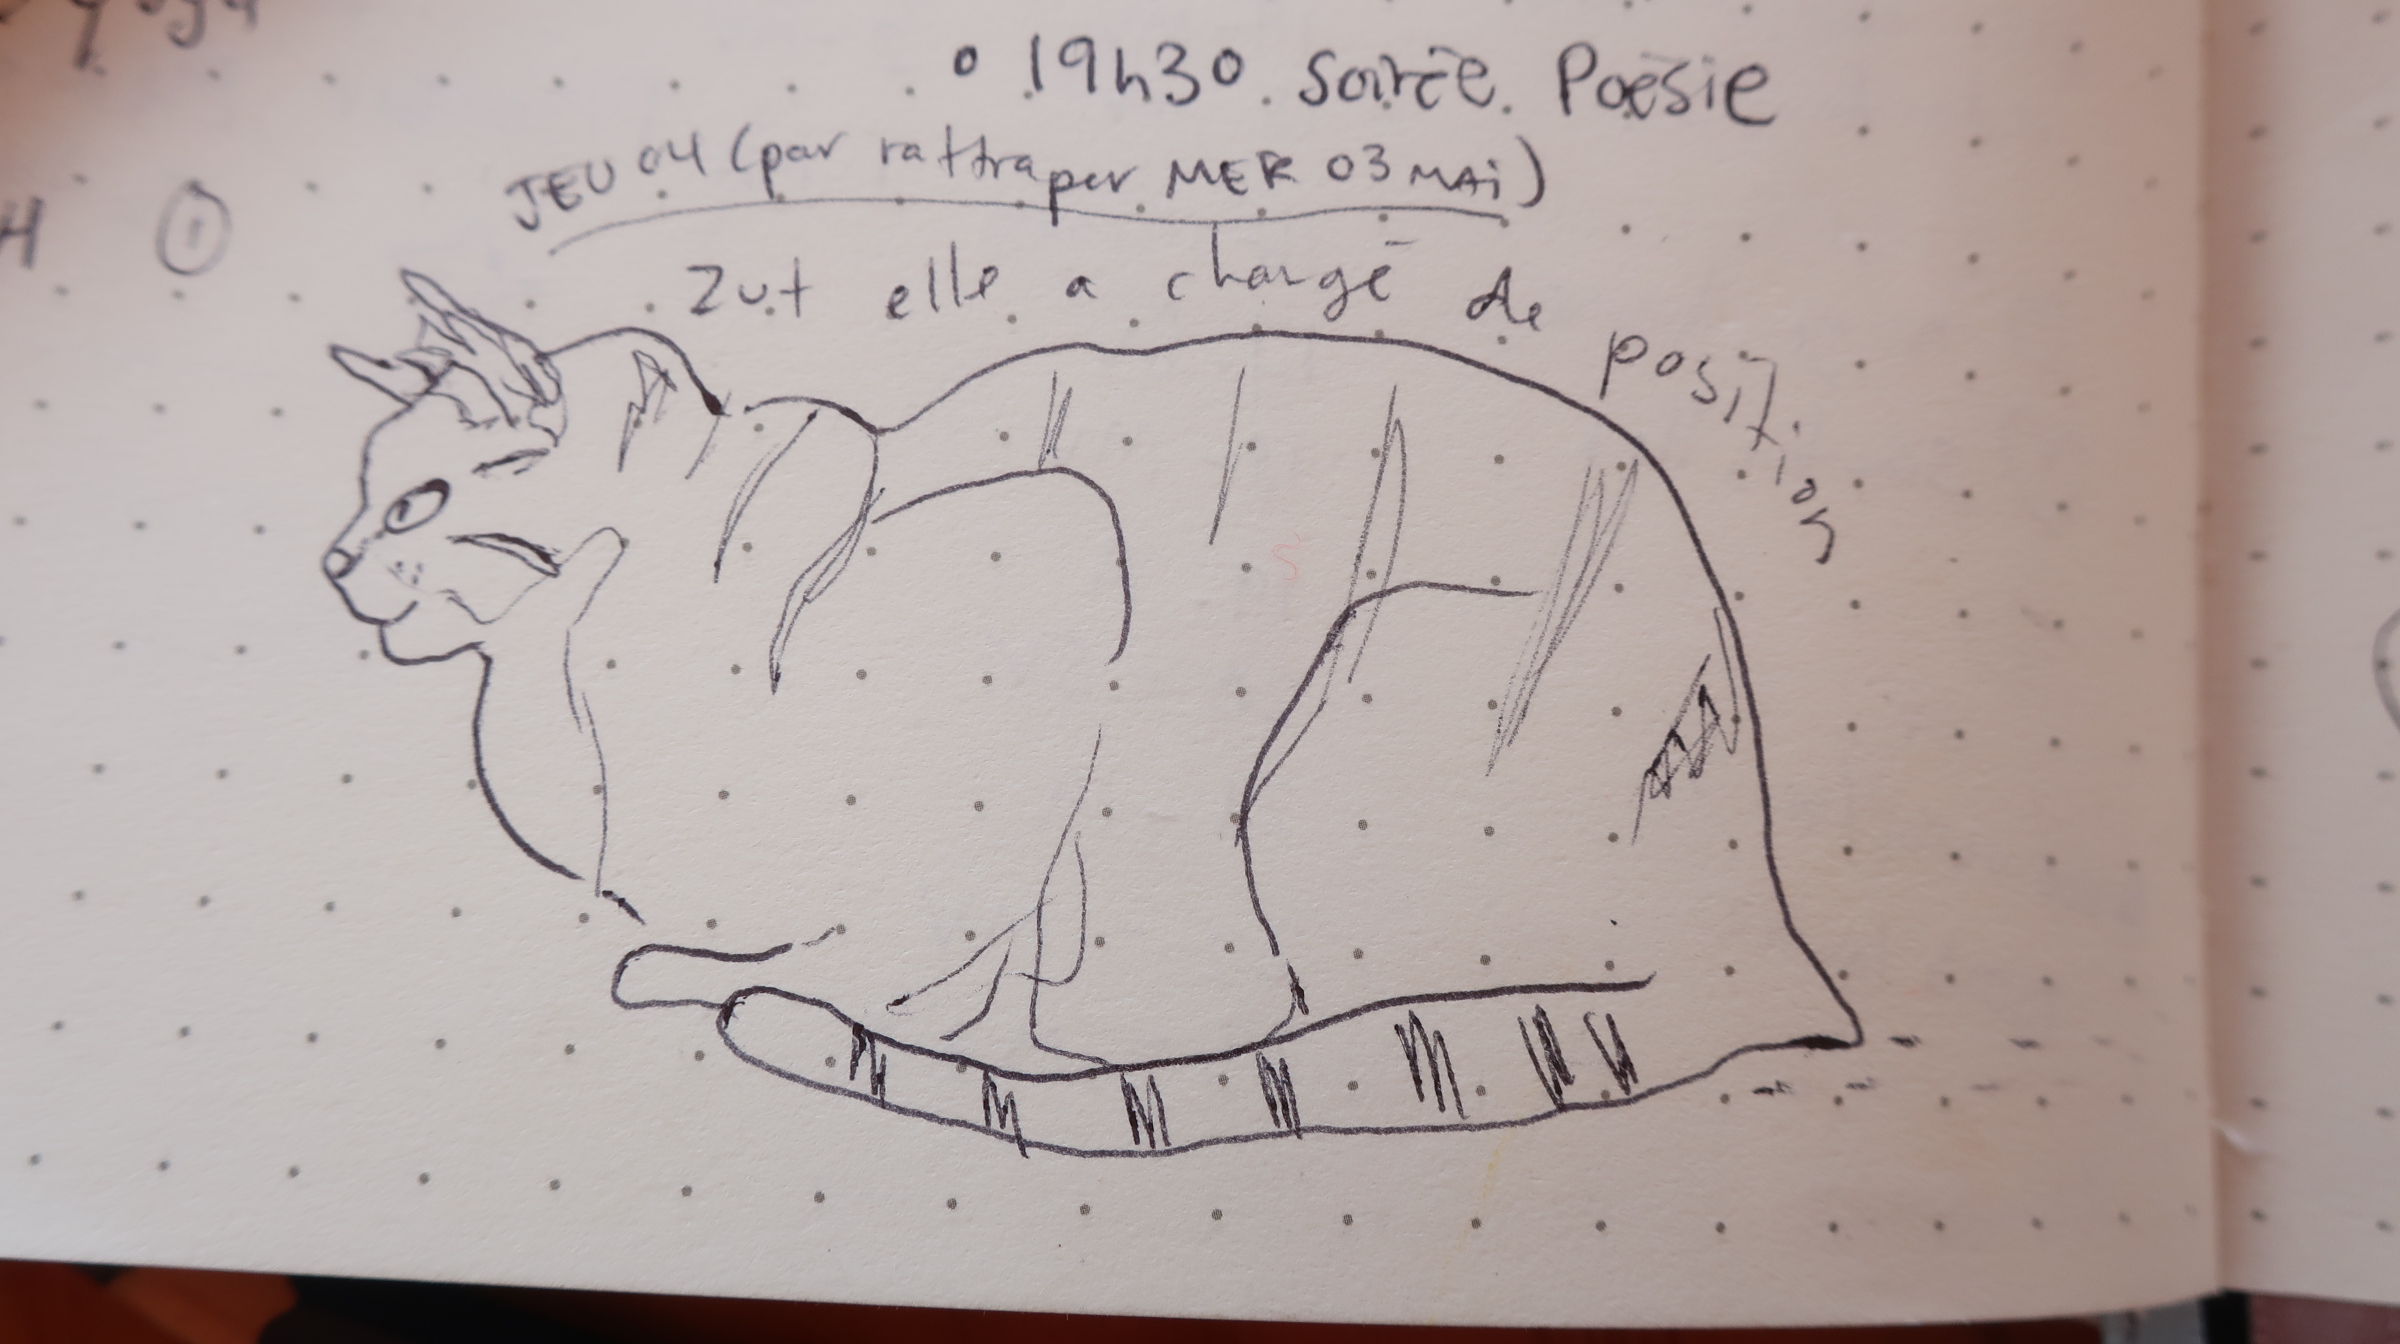 • 19h30 Soirée Poésie
JEU 04 (par rattraper MER 03 MAi)
Zut elle a changé de position
H ①